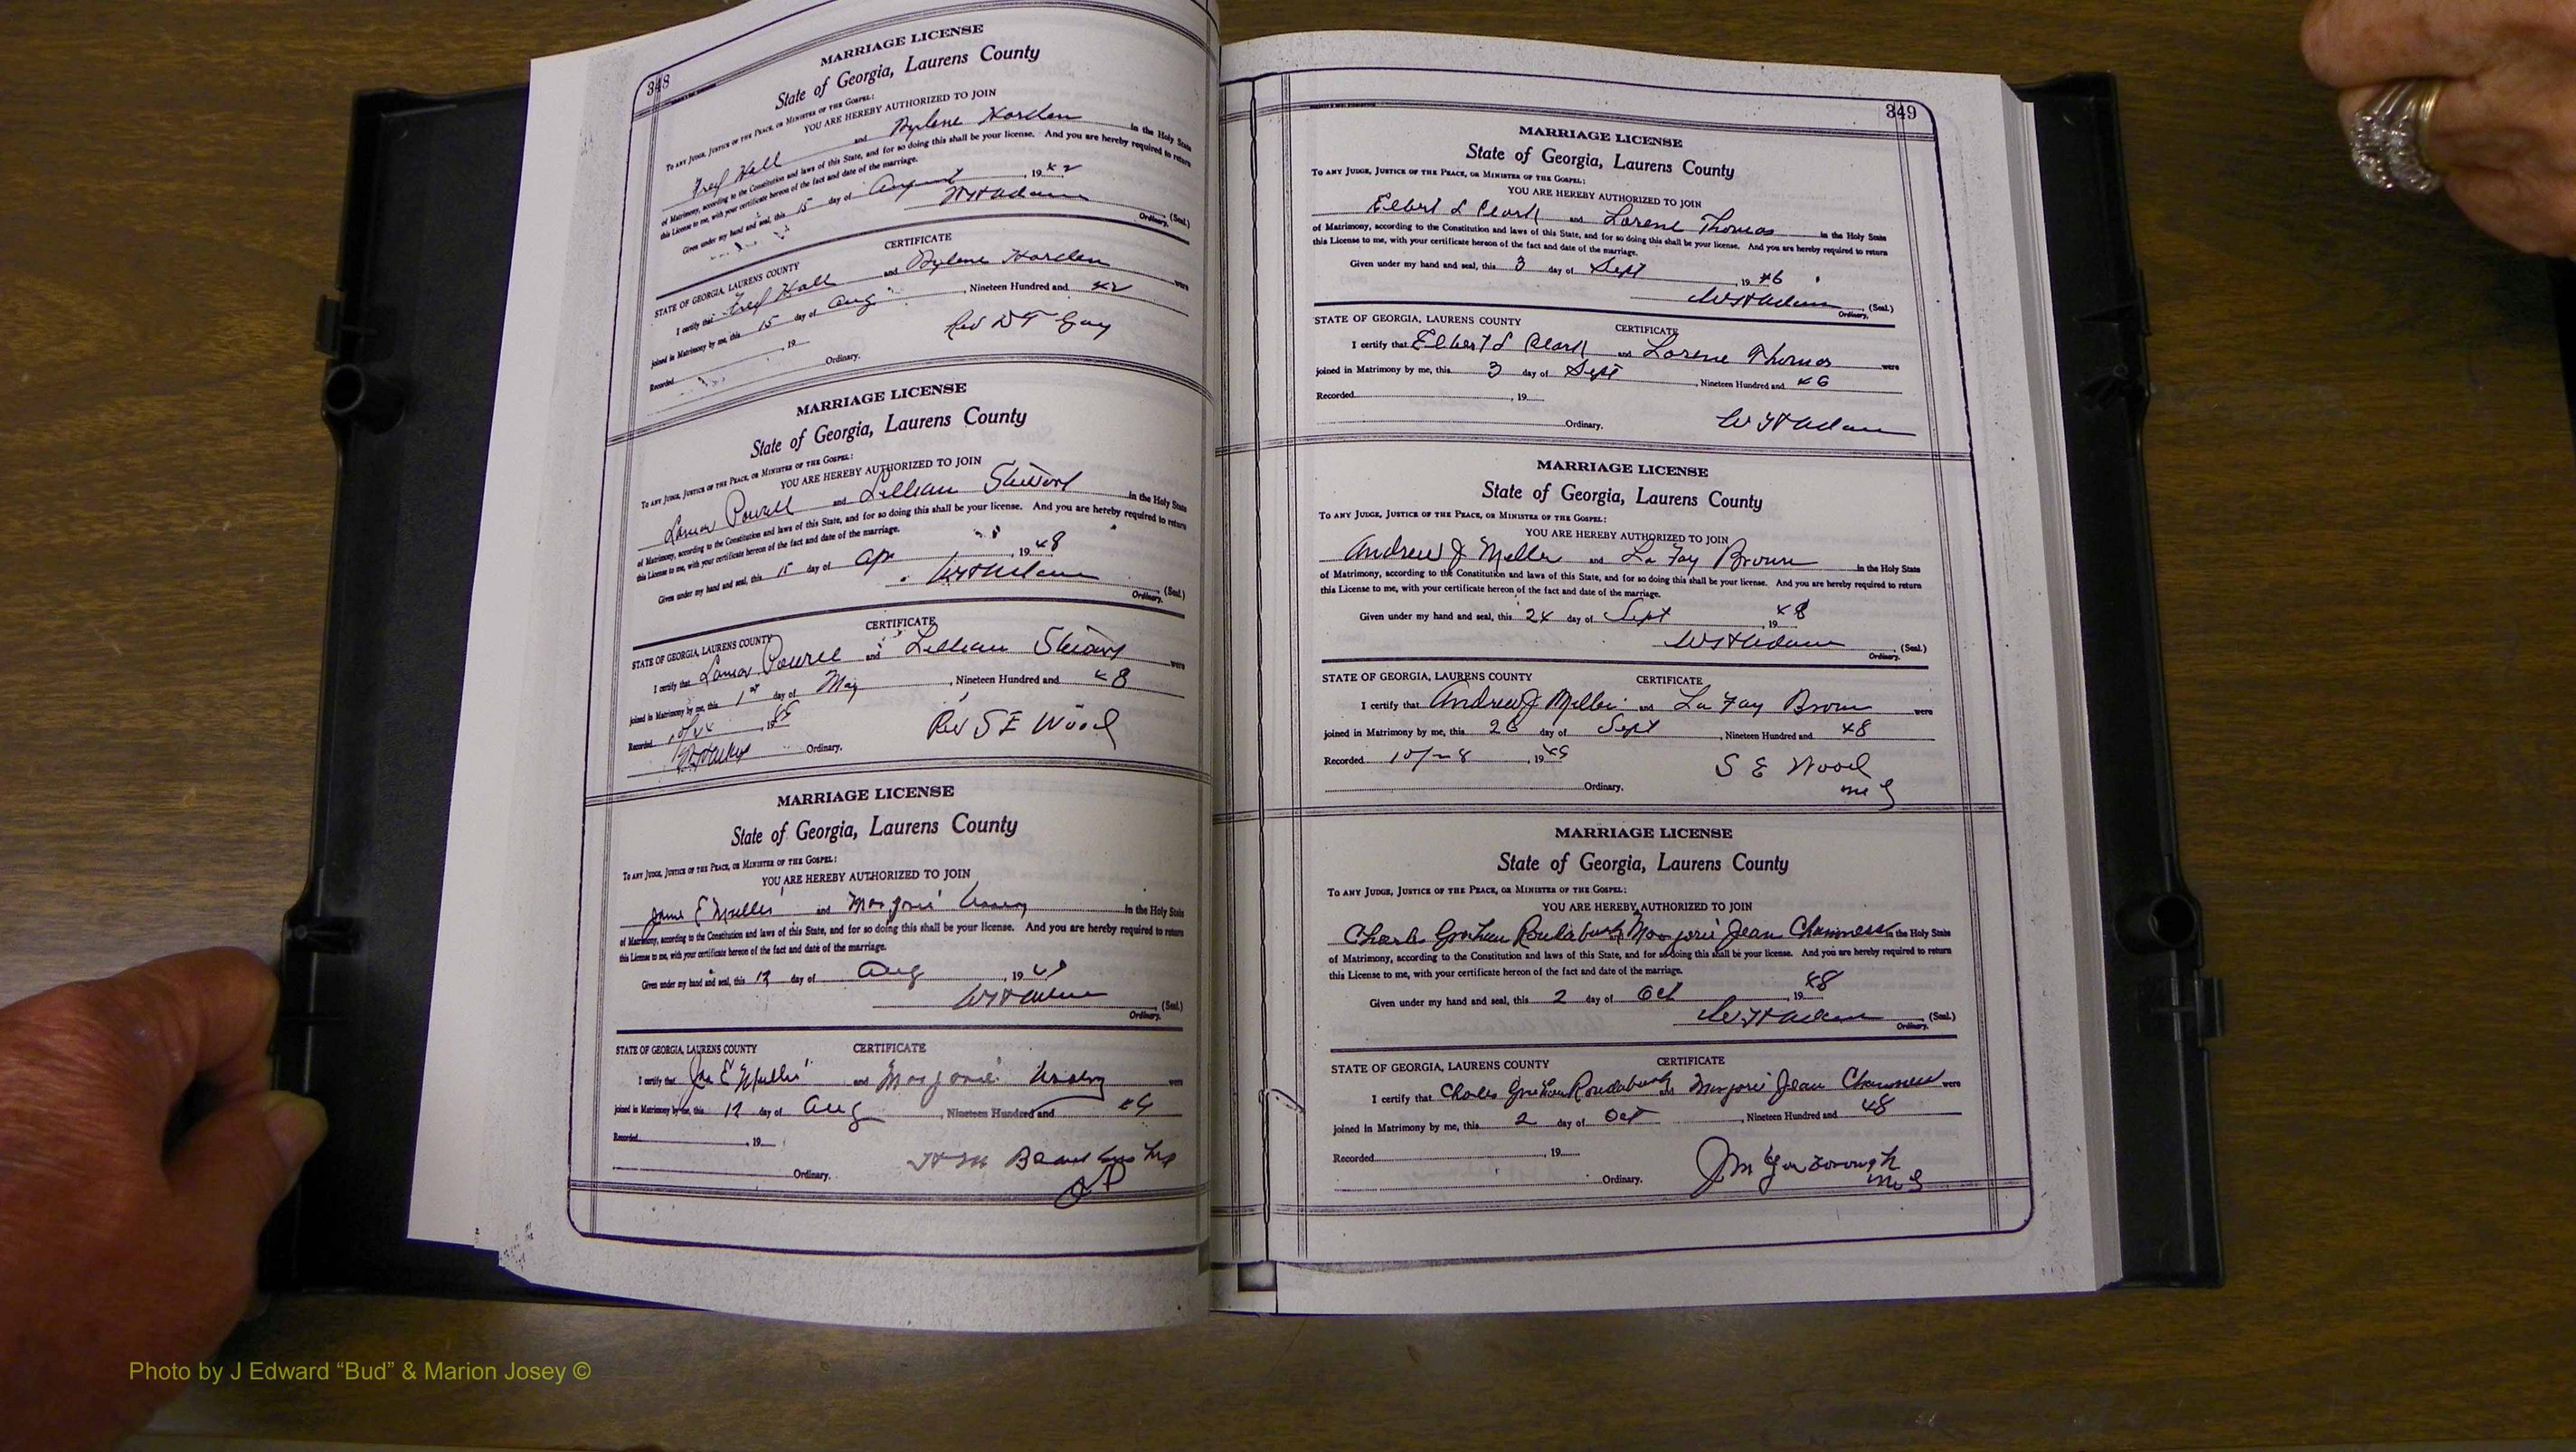 348
MARRIAGE LICENSE
State of Georgia, Laurens County
To ANY JUDGE, JUSTICE OF THE PEACE, OR MINISTER OF THE GOSPEL:
YOU ARE HEREBY AUTHORIZED TO JOIN
Fred Hall and Horden in the Holy State
of Matrimony, according to the Constitution and laws of this State, and for so doing this shall be your license. And you are hereby required to return
this License to me, with your certificate hereof of the fact and date of the marriage.
Given under my hand and seal, this 15 day of August, 1942
W H Adams (Seal.)
Ordinary.
CERTIFICATE
STATE OF GEORGIA, LAURENS COUNTY
I certify that Fred Hall and Horden were
joined in Matrimony by me, this 15 day of Aug, Nineteen Hundred and 42
Recorded, 19
Rev Gay
Ordinary.
MARRIAGE LICENSE
State of Georgia, Laurens County
To ANY JUDGE, JUSTICE OF THE PEACE, OR MINISTER OF THE GOSPEL:
YOU ARE HEREBY AUTHORIZED TO JOIN
Lamar Powell and Lillian Stewart in the Holy State
of Matrimony, according to the Constitution and laws of this State, and for so doing this shall be your license. And you are hereby required to return
this License to me, with your certificate hereof of the fact and date of the marriage.
Given under my hand and seal, this 15 day of Apr, 1948
W H Adams (Seal.)
Ordinary.
CERTIFICATE
STATE OF GEORGIA, LAURENS COUNTY
I certify that Lamar Powell and Lillian Stewart were
joined in Matrimony by me, this 1st day of May, Nineteen Hundred and 48
Recorded, 19
Rev S E Wood
Ordinary.
MARRIAGE LICENSE
State of Georgia, Laurens County
To ANY JUDGE, JUSTICE OF THE PEACE, OR MINISTER OF THE GOSPEL:
YOU ARE HEREBY AUTHORIZED TO JOIN
E Mullis and Marjorie in the Holy State
of Matrimony, according to the Constitution and laws of this State, and for so doing this shall be your license. And you are hereby required to return
this License to me, with your certificate hereof of the fact and date of the marriage.
Given under my hand and seal, this 12 day of Aug, 19
W H Adams (Seal.)
Ordinary.
STATE OF GEORGIA, LAURENS COUNTY CERTIFICATE
I certify that E Mullis and Marjorie were
joined in Matrimony by me, this 12 day of Aug, Nineteen Hundred and
Recorded, 19
Ordinary.
JP
349
MARRIAGE LICENSE
State of Georgia, Laurens County
To ANY JUDGE, JUSTICE OF THE PEACE, OR MINISTER OF THE GOSPEL:
YOU ARE HEREBY AUTHORIZED TO JOIN
Elbert L Clark and Lorene Thomas in the Holy State
of Matrimony, according to the Constitution and laws of this State, and for so doing this shall be your license. And you are hereby required to return
this License to me, with your certificate hereof of the fact and date of the marriage.
Given under my hand and seal, this 3 day of Sept, 1946
W H Adams (Seal.)
Ordinary.
STATE OF GEORGIA, LAURENS COUNTY CERTIFICATE
I certify that Elbert L Clark and Lorene Thomas were
joined in Matrimony by me, this 3 day of Sept, Nineteen Hundred and 46
Recorded, 19
Ordinary. W H Adams
MARRIAGE LICENSE
State of Georgia, Laurens County
To ANY JUDGE, JUSTICE OF THE PEACE, OR MINISTER OF THE GOSPEL:
YOU ARE HEREBY AUTHORIZED TO JOIN
Andrew J Miller and La Fay Brown in the Holy State
of Matrimony, according to the Constitution and laws of this State, and for so doing this shall be your license. And you are hereby required to return
this License to me, with your certificate hereof of the fact and date of the marriage.
Given under my hand and seal, this 24 day of Sept, 1948
W H Adams (Seal.)
Ordinary.
STATE OF GEORGIA, LAURENS COUNTY CERTIFICATE
I certify that Andrew J Miller and La Fay Brown were
joined in Matrimony by me, this 26 day of Sept, Nineteen Hundred and 48
Recorded, 19
S E Wood
Ordinary. MG
MARRIAGE LICENSE
State of Georgia, Laurens County
To ANY JUDGE, JUSTICE OF THE PEACE, OR MINISTER OF THE GOSPEL:
YOU ARE HEREBY AUTHORIZED TO JOIN
Charles Graham Roudabush Marjorie Jean Chamness in the Holy State
of Matrimony, according to the Constitution and laws of this State, and for so doing this shall be your license. And you are hereby required to return
this License to me, with your certificate hereof of the fact and date of the marriage.
Given under my hand and seal, this 2 day of Oct, 1948
W H Adams (Seal.)
Ordinary.
STATE OF GEORGIA, LAURENS COUNTY CERTIFICATE
I certify that Charles Graham Roudabush Marjorie Jean Chamness were
joined in Matrimony by me, this 2 day of Oct, Nineteen Hundred and 48
Recorded, 19
J M Yarborough
Ordinary. MG
Photo by J Edward “Bud” & Marion Josey ©